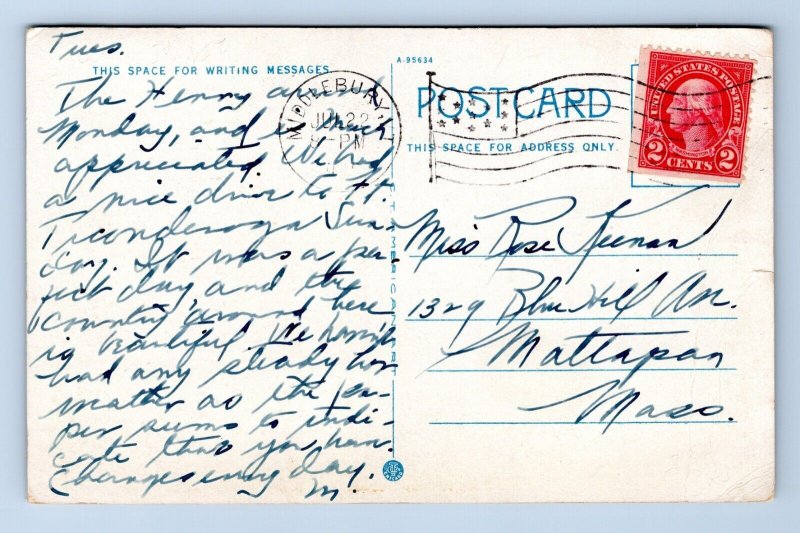 Tues.
THIS SPACE FOR WRITING MESSAGES
The Henny arrived
Monday, and is much
appreciated. We had
a nice drive to Ft.
Ticonderoga Sun-
day. It was a per-
fect day and the
country around here
is beautiful. We haven't
had any steady hot
weather as the pa-
per seems to indi-
cate that you have.
Changes every day.
M.
A-95634
POST CARD
THIS SPACE FOR ADDRESS ONLY.
MIDDLEBURY
JUL 22
PM
UNITED STATES POSTAGE
WASHINGTON
2 CENTS 2
Miss Rose Keenan
1329 Blue Hill Av.
Mattapan
Mass.